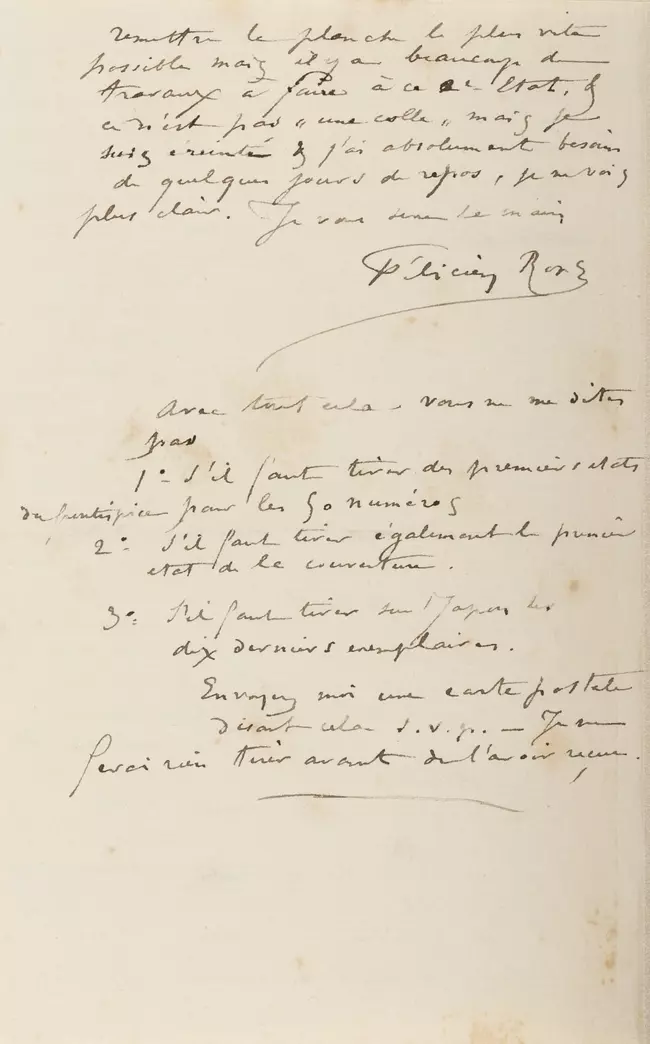 remettre la planche le plus vite
possible mais il y a beaucoup de
travaux à faire à ce 2e Etat, &
ce n'est pas "une colle" mais je
suis éreinté & j'ai absolument besoin
de quelques jours de repos, je ne vois
plus clair. Je vous serre la main
Félicien Rops
Avec tout cela vous ne me dites
pas
1º S'il faut tirer des premiers etats
du frontispice pour les 50 numéros
2º S'il faut tirer également le premier
etat de la couverture.
3º S'il faut tirer sur Japon les
dix derniers exemplaires.
Envoyez moi une carte postale
disant cela s.v.p. — Je ne
ferai rien tirer avant de l'avoir reçue.